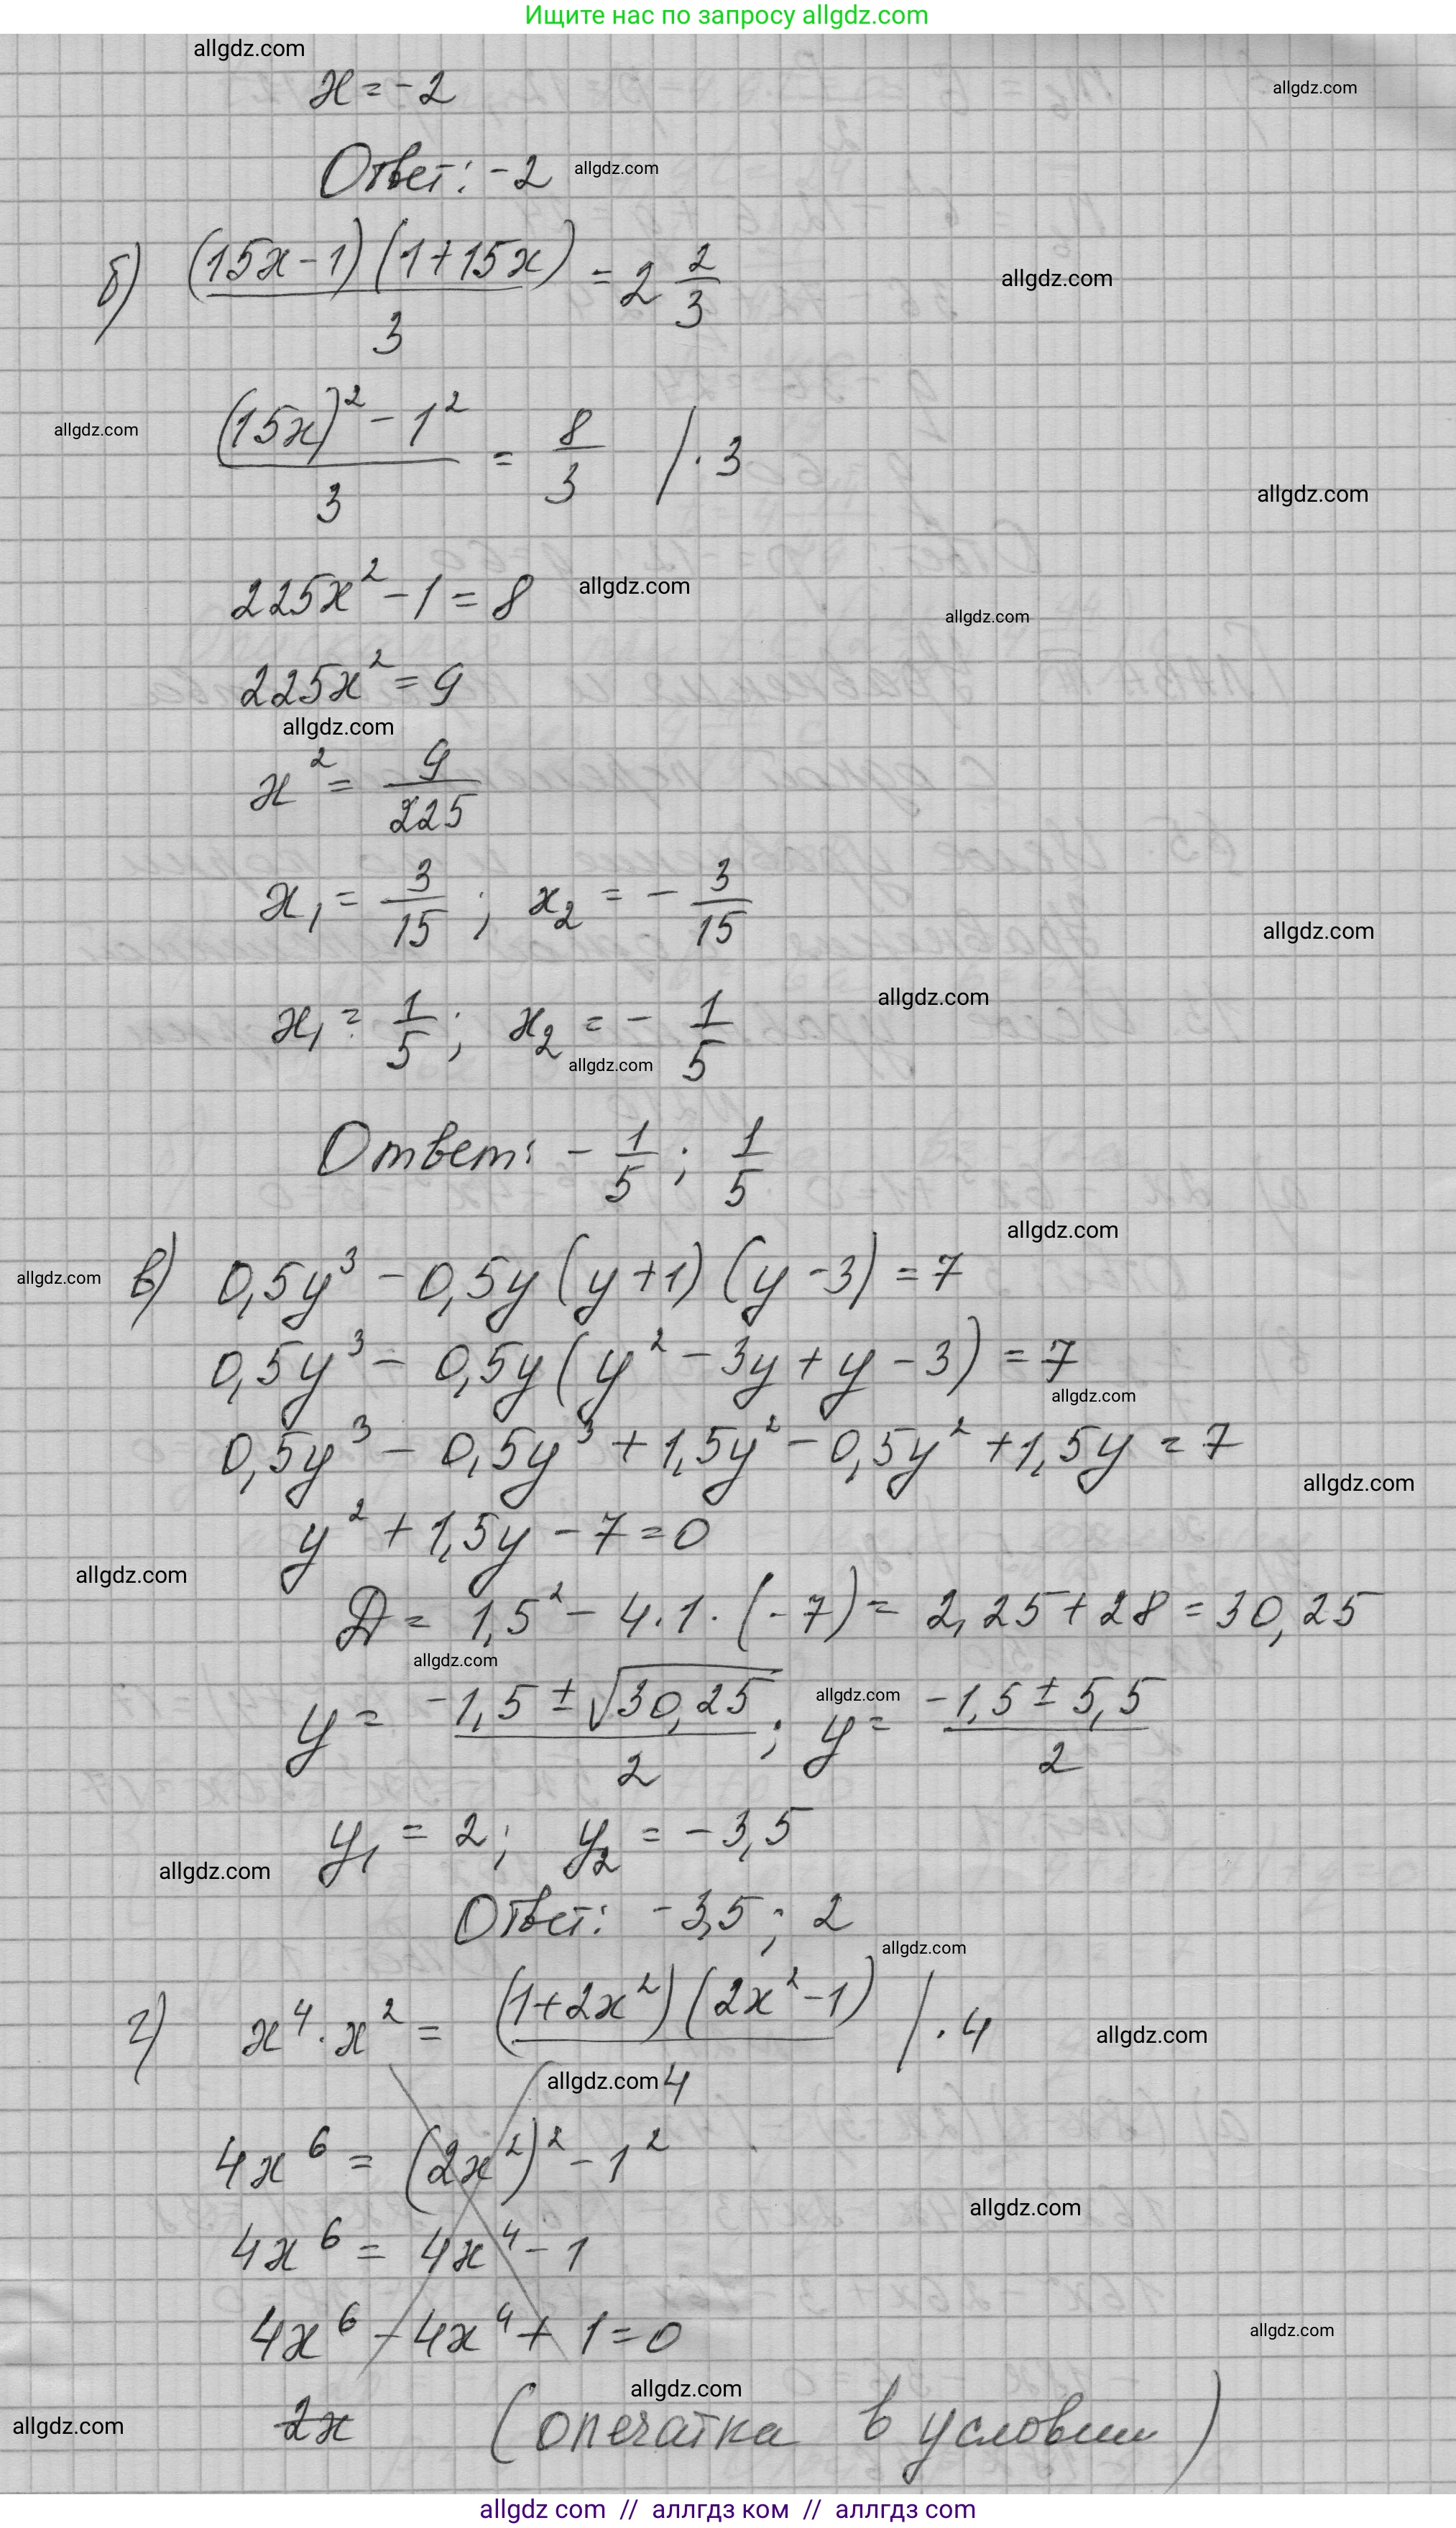 Ищите нас по запросу allgdz.com
allgdz.com
x = -2
allgdz.com
Ответ: -2 allgdz.com
б) (15x-1)(1+15x)/3 = 2 2/3
allgdz.com
((15x)² - 1²)/3 = 8/3 /·3
allgdz.com
allgdz.com
225x² - 1 = 8 allgdz.com
allgdz.com
225x² = 9
allgdz.com
x² = 9/225
x₁ = 3/15 ; x₂ = - 3/15
allgdz.com
allgdz.com
x₁ = 1/5 ; x₂ = - 1/5
allgdz.com
Ответ: - 1/5 ; 1/5
allgdz.com
allgdz.com
в) 0,5y³ - 0,5y(y+1)(y-3) = 7
0,5y³ - 0,5y(y² - 3y + y - 3) = 7
allgdz.com
0,5y³ - 0,5y³ + 1,5y² - 0,5y² + 1,5y = 7
allgdz.com
y² + 1,5y - 7 = 0
allgdz.com
Д = 1,5² - 4·1·(-7) = 2,25 + 28 = 30,25
allgdz.com
y = (-1,5 ± √30,25)/2 ; y = (-1,5 ± 5,5)/2
allgdz.com
y₁ = 2; y₂ = -3,5
allgdz.com
Ответ: -3,5 ; 2
allgdz.com
г) x⁴·x² = (1+2x²)(2x²-1)/4 /·4
allgdz.com
allgdz.com
4x⁶ = (2x²)² - 1²
allgdz.com
4x⁶ = 4x⁴ - 1
4x⁶ - 4x⁴ + 1 = 0
allgdz.com
allgdz.com
2x (опечатка в условии)
allgdz.com
allgdz com // аллгдз ком // аллгдз com